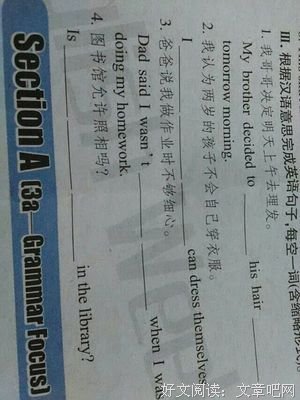 III. 根据汉语意思完成英语句子,每空一词(含缩略形式
1. 我哥哥决定明天上午去理发。
My brother decided to ______ his hair ______
tomorrow morning.
2. 我认为两岁的孩子不会自己穿衣服。
I ______ ______ can dress themselves
3. 爸爸说我做作业时不够细心。
Dad said I wasn't ______ ______ when I was
doing my homework.
4. 图书馆允许照相吗?
Is ______ ______ ______ in the library?
Section A (3a—Grammar Focus)
好文阅读:文章吧网